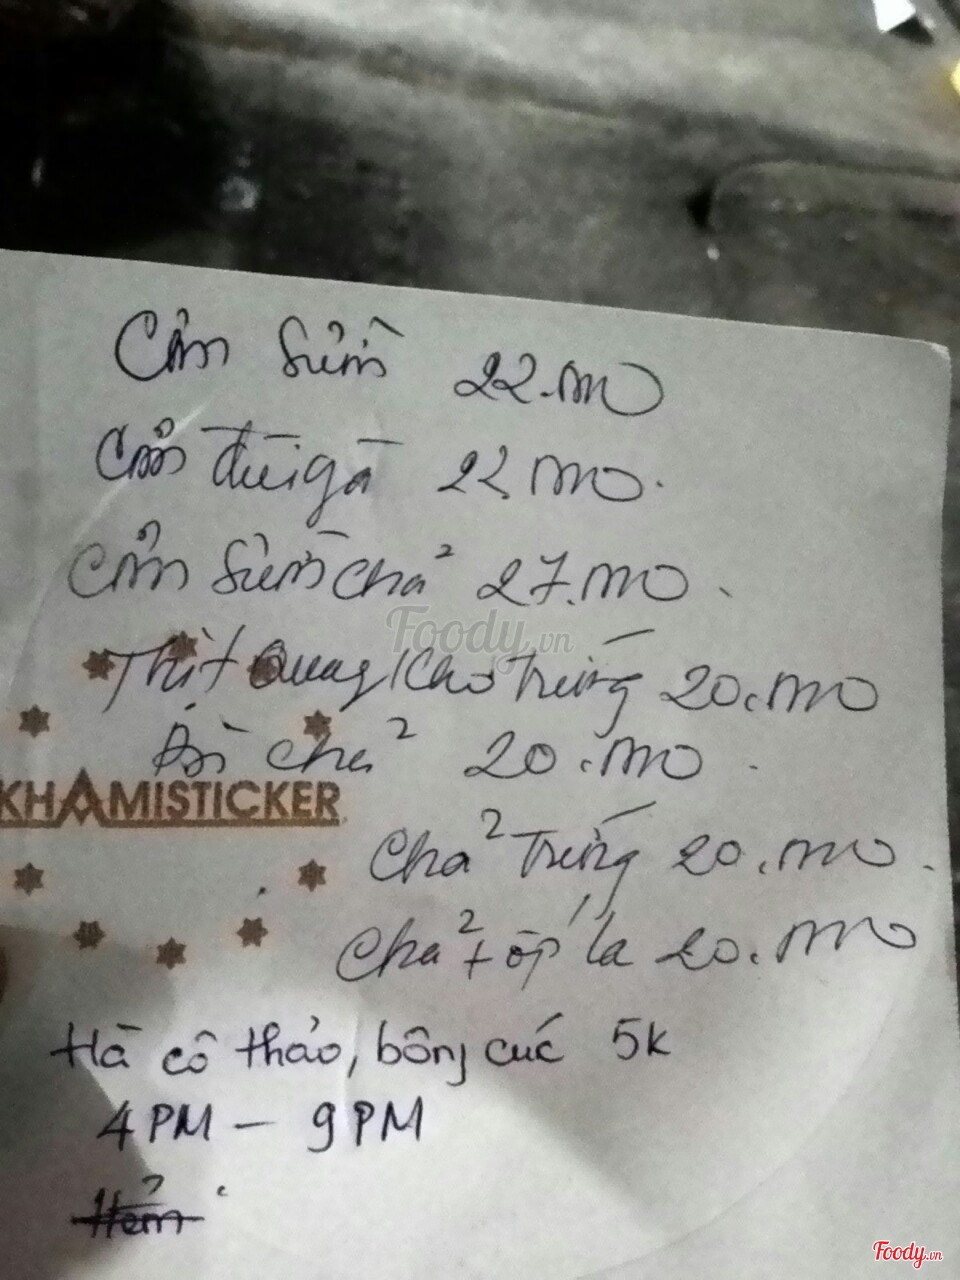 Cơm Sườn 22.000
Cơm đùi gà 22.000.
Cơm Sườn chả 27.000.
Foody.vn
Thịt Quay Kho Trứng 20.000
Bì chả 20.000.
KHAMISTICKER
Chả Trứng 20.000.
Chả + ốp la 20.000
Hà cô thảo, bông cúc 5k
4 PM - 9 PM
Hẻm
Foody.vn